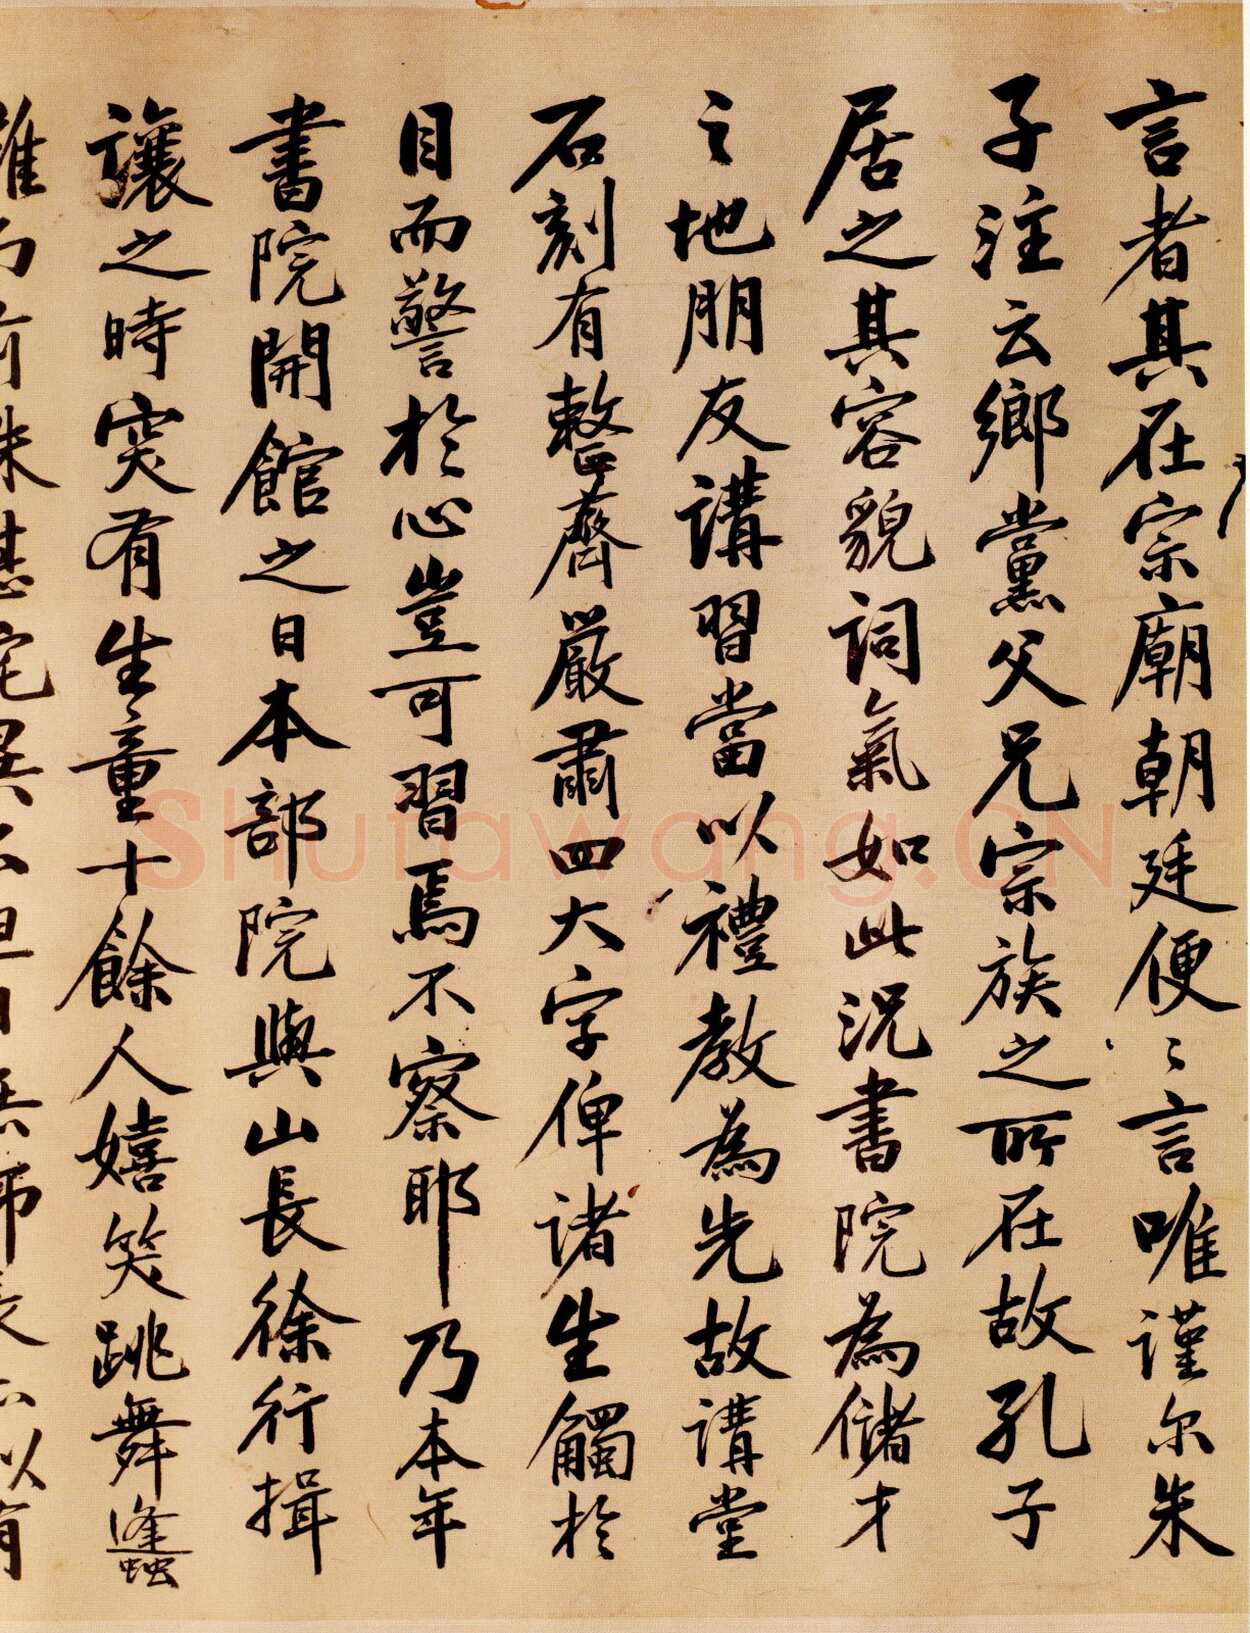 言者其在宗廟朝廷便〻言唯謹尔朱
子注云鄉黨父兄宗族之所在故孔子
居之其容貌詞氣如此况書院為儲才
之地朋友講習當以禮教為先故講堂
石刻有整齊嚴肅四大字俾诸生觸於
目而警於心豈可習焉不察耶乃本年
書院開館之日本部院與山長徐行揖
讓之時突有生童十餘人嬉笑跳舞蠭
Shufawang.CN